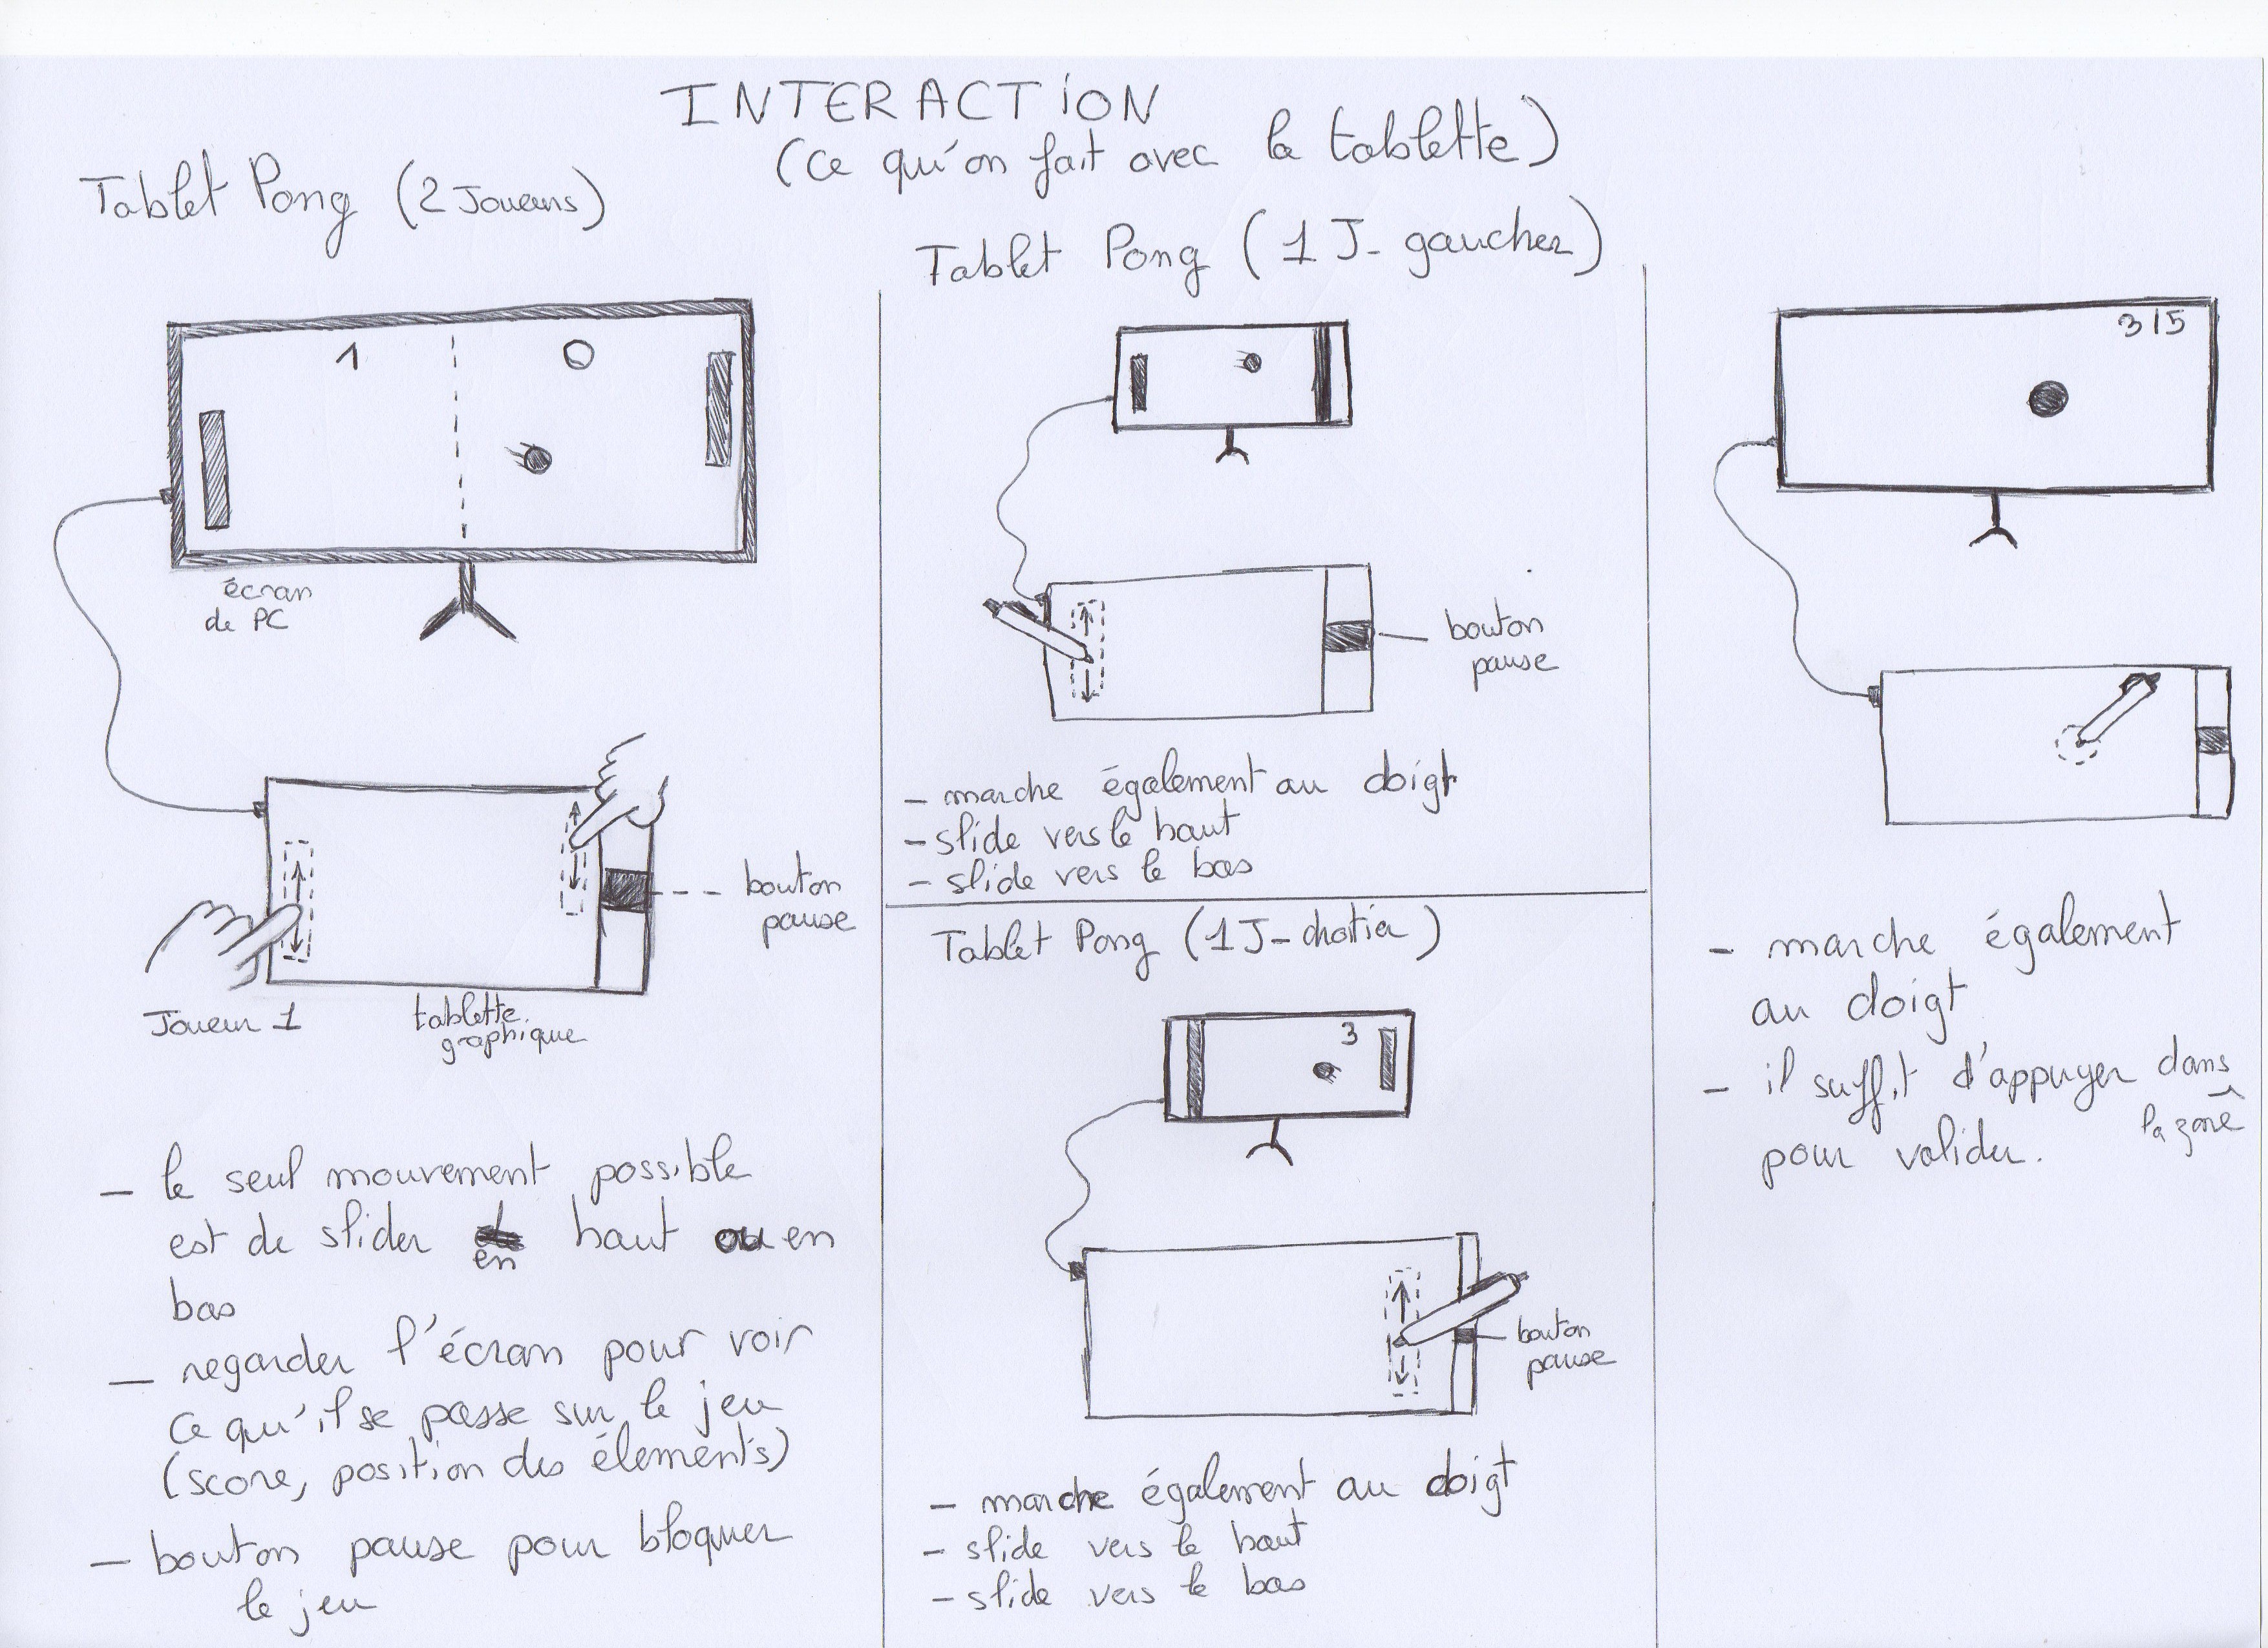 INTERACTiON
(Ce qu'on fait avec la tablette)
Tablet Pong (2 Joueurs)
1
0
écran
de PC
bouton
pause
Joueur 1
tablette
graphique
- le seul mouvement possible
est de slider en haut ou en
bas
- regarder l'écran pour voir
ce qu'il se passe sur le jeu
(score, position des élements)
- bouton pause pour bloquer
le jeu
Tablet Pong (1 J- gaucher)
bouton
pause
- marche également au doigt
- slide vers le haut
- slide vers le bas
Tablet Pong (1 J- droitier)
3
bouton
pause
- marche également au doigt
- slide vers le haut
- slide vers le bas
3/5
- marche également
au doigt
- il suffit d'appuyer dans
la zone
pour valider.